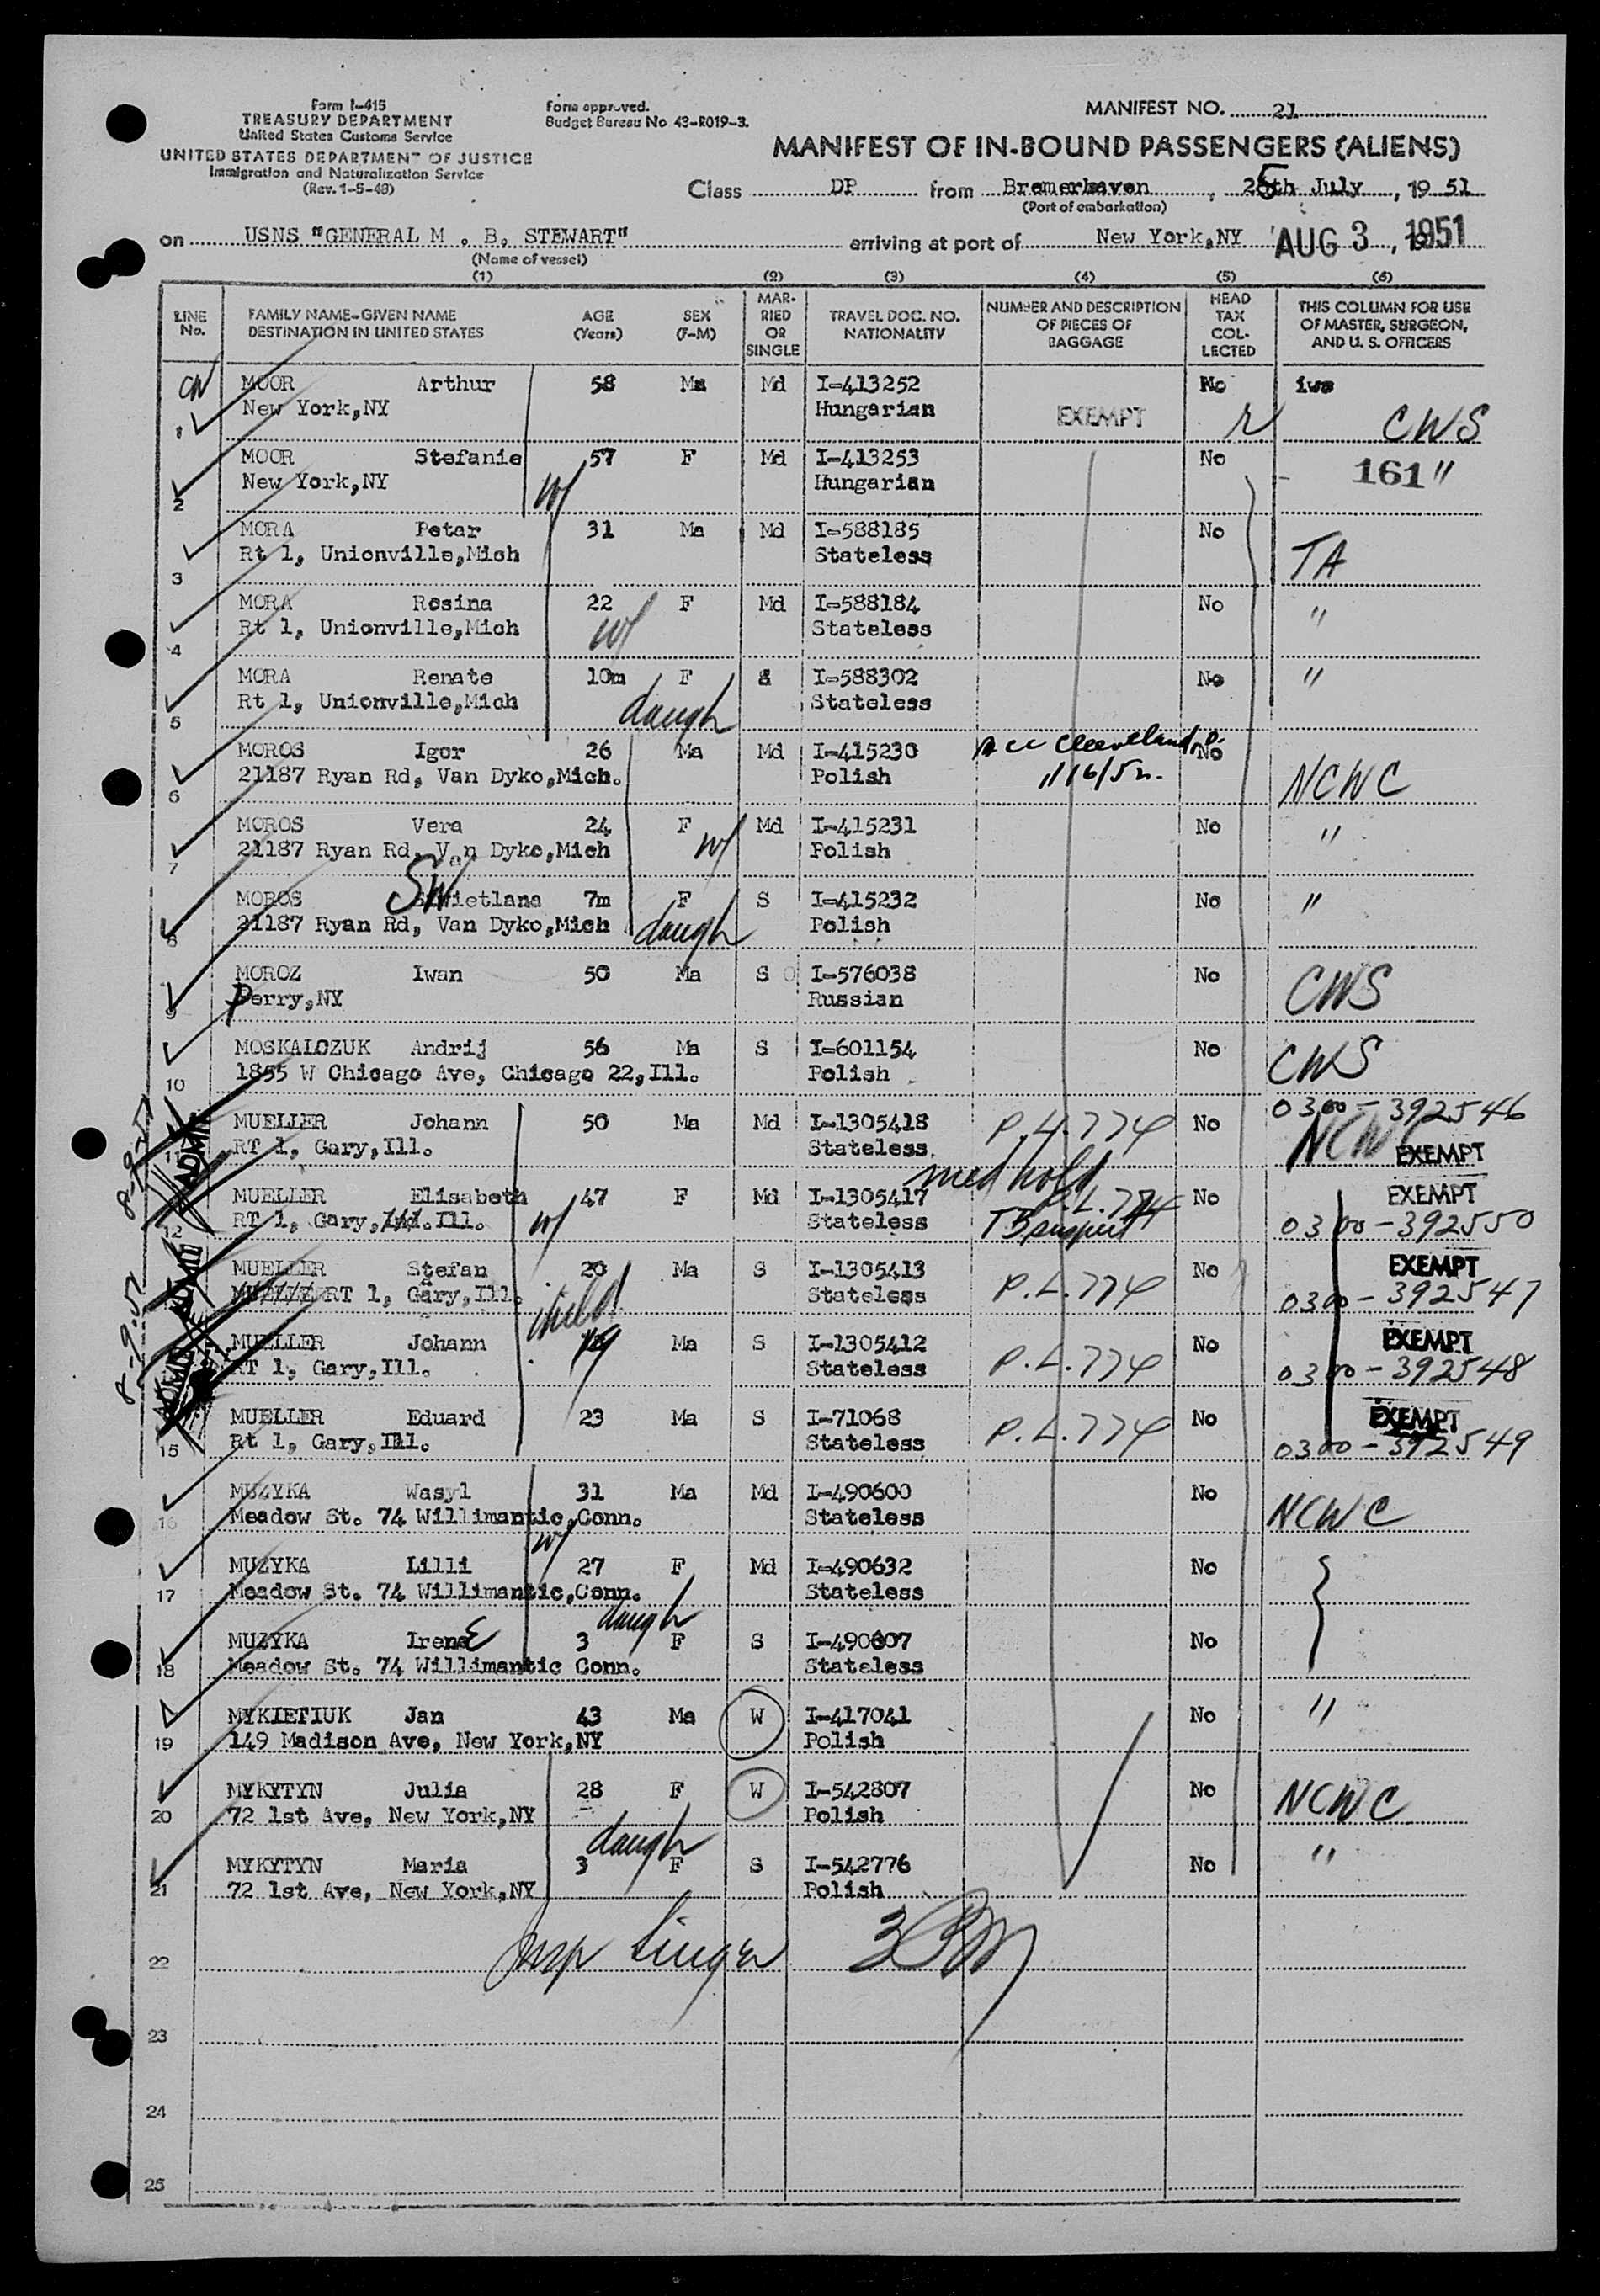 Form I-415
TREASURY DEPARTMENT
United States Customs Service
UNITED STATES DEPARTMENT OF JUSTICE
Immigration and Naturalization Service
(Rev. 1-5-48)
Form approved.
Budget Bureau No 43-R019-3.
MANIFEST NO. 21
MANIFEST OF IN-BOUND PASSENGERS (ALIENS)
Class DP from Bremerhaven, 25th July, 19 51
(Port of embarkation)
on USNS "GENERAL M . B. STEWART" arriving at port of New York,NY AUG 3, 1951
(Name of vessel)
(1) (2) (3) (4) (5) (6)
LINE No. FAMILY NAME-GIVEN NAME DESTINATION IN UNITED STATES AGE (Years) SEX (F-M) MAR-RIED OR SINGLE TRAVEL DOC. NO. NATIONALITY NUMBER AND DESCRIPTION OF PIECES OF BAGGAGE HEAD TAX COL-LECTED THIS COLUMN FOR USE OF MASTER, SURGEON, AND U. S. OFFICERS
MOOR Arthur 58 Ma Md I-413252 No
1 New York,NY Hungarian EXEMPT CWS
MOOR Stefanie 57 F Md I-413253 No 161 "
2 New York,NY w/ Hungarian
MORA Petar 31 Ma Md I-588185 No
3 Rt 1, Unionville,Mich Stateless TA
MORA Rosina 22 F Md I-588184 No "
4 Rt 1, Unionville,Mich w/ Stateless
MORA Renate 10m F I-588302 No "
5 Rt 1, Unionville,Mich daugh Stateless
MOROS Igor 26 Ma Md I-415230 Cleveland, O. No
6 21187 Ryan Rd, Van Dyko,Mich. Polish NCWC
MOROS Vera 24 F w/ Md I-415231 No "
7 21187 Ryan Rd, Van Dyke,Mich Polish
MOROS Swietlana 7m F S I-415232 No "
8 21187 Ryan Rd, Van Dyko,Mich daugh Polish
MOROZ Iwan 50 Ma S I-576038 No CWS
9 Perry,NY Russian
MOSKALCZUK Andrij 56 Ma S I-601154 No CWS
10 1855 W Chicago Ave, Chicago 22,Ill. Polish
0300-392546
MUELLER Johann 50 Ma Md I-1305418 P.L.774 No NCWC
11 RT 1, Gary,Ill. Stateless. EXEMPT
med hold
MUELLER Elisabeth 47 F Md I-1305417 P.L.774 No EXEMPT
12 RT 1, Gary, Ill. w/ Stateless TB suspect 0300-392550
MUELLER Stefan 20 Ma S I-1305413 No EXEMPT
RT 1, Gary,Ill. child Stateless P.L.774 0300-392547
MUELLER Johann 19 Ma S I-1305412 No EXEMPT
RT 1, Gary,Ill. Stateless P.L.774 0300-392548
MUELLER Eduard 23 Ma S I-71068 P.L.774 No EXEMPT
15 Rt 1, Gary,Ill. Stateless 0300-392549
8-9-51 ADMIT
8-9-51 ADMITTED
MUZYKA Wasyl 31 Ma Md I-490600 No NCWC
16 Meadow St. 74 Willimantic,Conn. Stateless
w/
MUZYKA Lilli 27 F Md I-490632 No
17 Meadow St. 74 Willimantic,Conn. Stateless
daugh
MUZYKA Irene 3 F S I-490607 No
18 Meadow St. 74 Willimantic Conn. Stateless
MYKIETIUK Jan 43 Ma W I-417041 No "
19 149 Madison Ave, New York,NY Polish
MYKYTYN Julia 28 F W I-542807 No NCWC
20 72 1st Ave, New York,NY Polish
daugh
MYKYTYN Maria 3 F S I-542776 No "
21 72 1st Ave, New York,NY Polish
22 Insp Singer
23
24
25